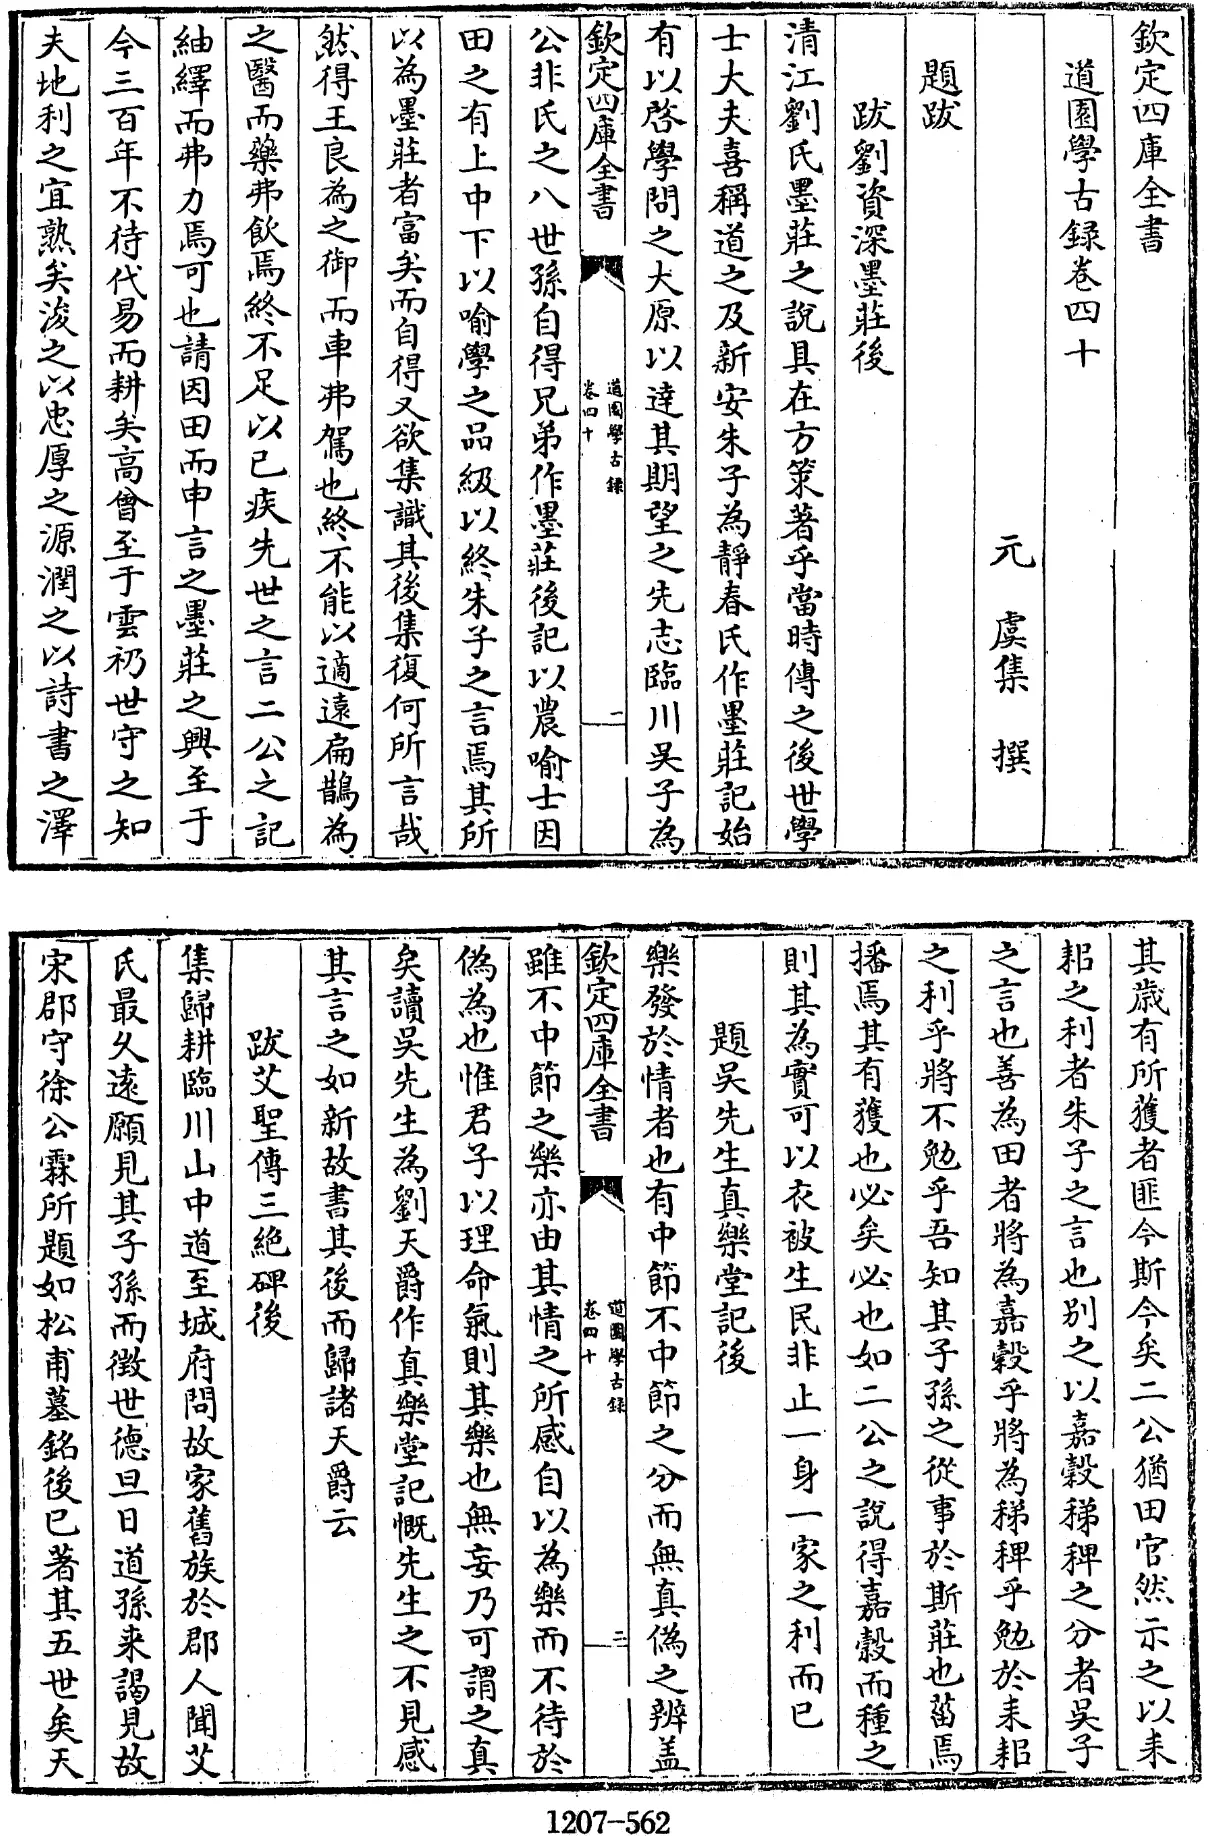 欽定四庫全書
道園學古録卷四十
元　虞集　撰
題跋
跋劉資深墨莊後
清江劉氏墨莊之說具在方策著乎當時傳之後世學
士大夫喜稱道之及新安朱子為靜春氏作墨莊記始
有以啓學問之大原以達其期望之先志臨川吳子為
欽定四庫全書
道園學古録
卷四十
一
公非氏之八世孫自得兄弟作墨莊後記以農喻士因
田之有上中下以喻學之品級以終朱子之言焉其所
以為墨莊者富矣而自得又欲集識其後集復何所言哉
然得王良為之御而車弗駕也終不能以適遠扁鵲為
之醫而藥弗飲焉終不足以已疾先世之言二公之記
紬繹而弗力焉可也請因田而申言之墨莊之興至于
今三百年不待代易而耕矣高曾至于雲礽世守之知
夫地利之宜熟矣浚之以忠厚之源潤之以詩書之澤
其歲有所獲者匪今斯今矣二公猶田官然示之以耒
耜之利者朱子之言也别之以嘉穀稊稗之分者吳子
之言也善為田者將為嘉穀乎將為稊稗乎勉於耒耜
之利乎將不勉乎吾知其子孫之從事於斯莊也菑焉
播焉其有獲也必矣必也如二公之說得嘉穀而種之
則其為實可以衣被生民非止一身一家之利而已
題吳先生真樂堂記後
樂發於情者也有中節不中節之分而無真僞之辨蓋
欽定四庫全書
道園學古録
卷四十
二
雖不中節之樂亦由其情之所感自以為樂而不待於
僞為也惟君子以理命氣則其樂也無妄乃可謂之真
矣讀吳先生為劉天爵作真樂堂記慨先生之不見感
其言之如新故書其後而歸諸天爵云
跋艾聖傳三絶碑後
集歸耕臨川山中道至城府問故家舊族於郡人聞艾
氏最乆遠願見其子孫而徴世德旦日道孫來謁見故
宋郡守徐公霖所題如松甫墓銘後已著其五世矣天
1207-562